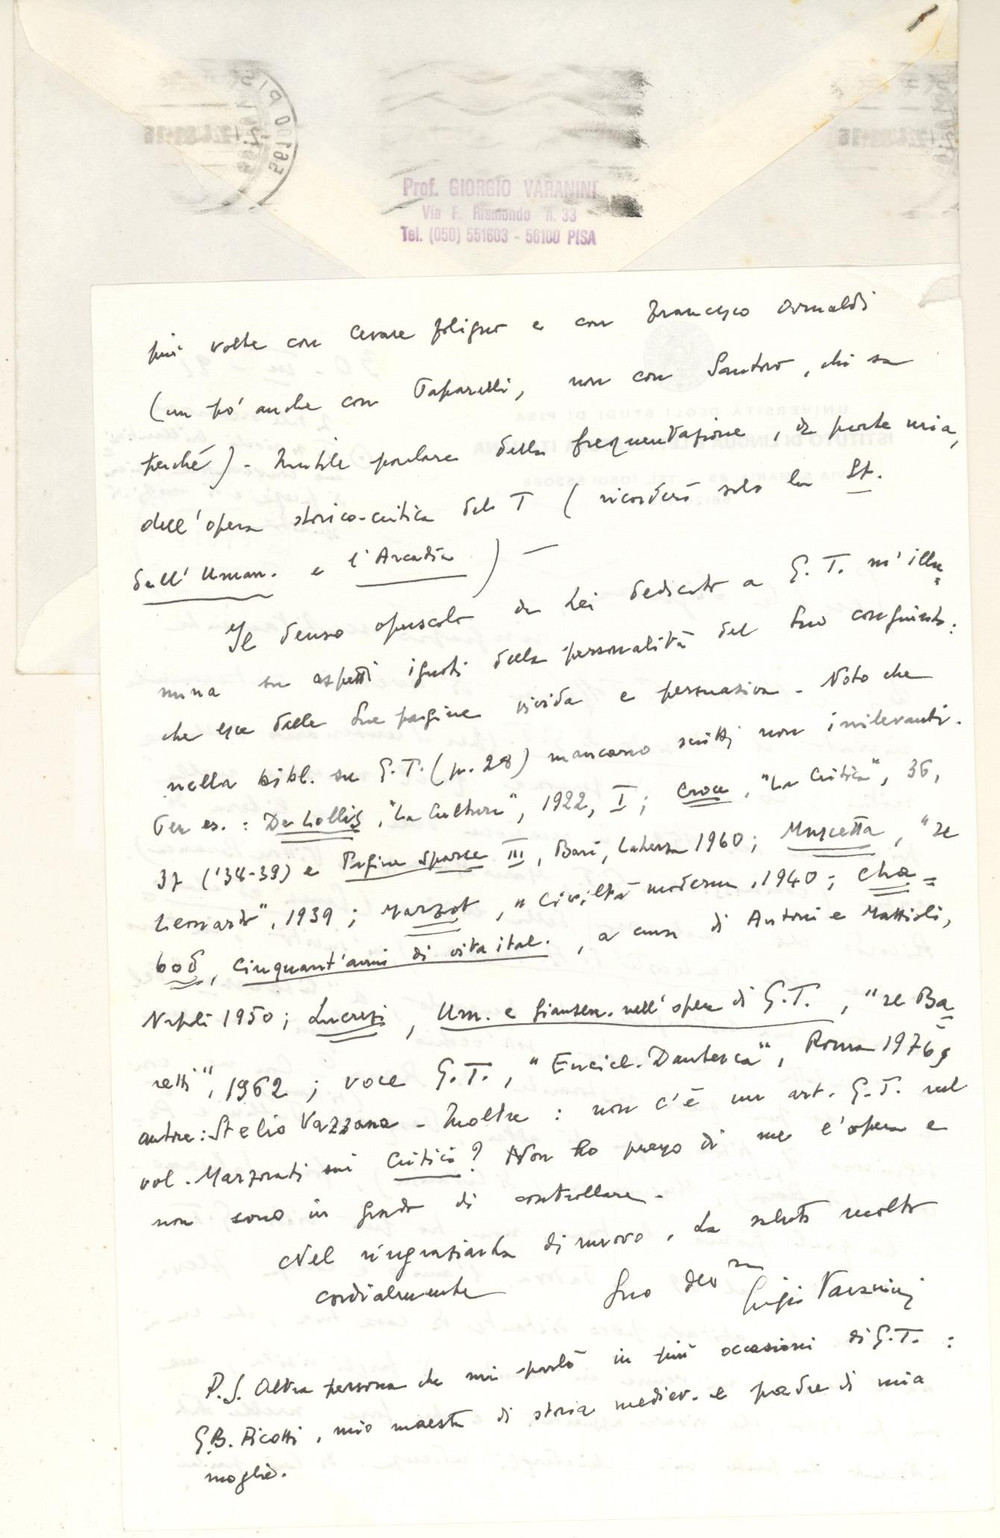 Prof. GIORGIO VARANINI
Via F. Rismondo n. 33
Tel. (050) 551603 - 56100 PISA
più volte con Cesare Foligno e con Francesco Arnaldi
(un po' anche con Toffanin, non con Santoro, chi sa
perché) - Inutile parlare della frequentazione, da parte mia,
dell'opera storico-critica del T (ricorderò solo la St.
dell'Uman. e l'Arcadia) —
Il denso opuscolo da Lei dedicato a G. T. m'illu=
mina su aspetti ignoti della personalità del Suo congiunto:
che esce dalle Sue pagine vivida e persuasiva - Noto che
nella bibl. su G.T. (p. 28) mancano scritti non irrilevanti.
Per es.: De Lollis, "La Cultura", 1922, I; Croce, "La Critica", 36,
37 ('38-39) e Pagine sparse III, Bari, Laterza 1960; Muscetta, "
Leonardo", 1939; Marzot, "Civiltà moderna, 1940; Cha=
bod, Cinquant'anni di vita ital., a cura di Antoni e Mattioli,
Napoli 1950; Um. e giansen. nell'opera di G.T., "Il Ba=
retti", 1962; voce G.T., "Encicl. Dantesca", Roma 1976,
autore: Stelio Vazzana - Inoltre: non c'è un art. G.T. nel
vol. Marzorati sui Critici? Non ho presso di me l'opera e
non sono in grado di controllare -
Nel ringraziarLa di nuovo, La saluto molto
cordialmente Suo dev.mo Giorgio Varanini
P.S. Altra persona che mi parlò in più occasioni di G.T.:
G.B. Picotti, mio maestro di storia mediev. e padre di mia
moglie.